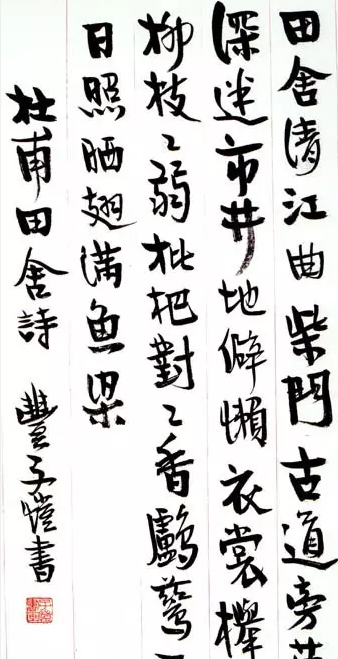 田舍清江曲柴門古道旁
深迷市井地僻懶衣裳櫸
柳枝〻弱枇杷對〻香鸕鶿
日照晒翅滿魚梁
杜甫田舍詩 豐子愷書